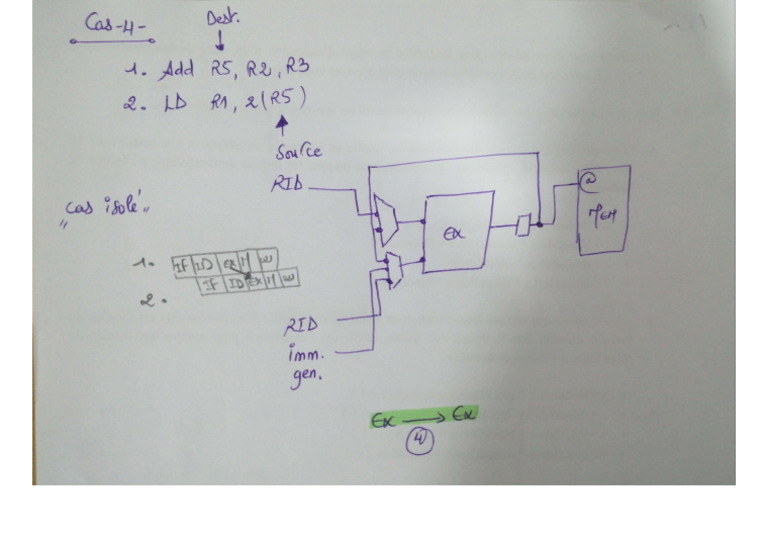 Cas-4-
Dest.
1. Add R5, R2, R3
2. LD R1, 2(R5)
Source
RID
"cas isolé"
@
MEM
EX
1. IF ID EX M W
2. IF ID EX M W
RID
imm.
gen.
EX → EX
4